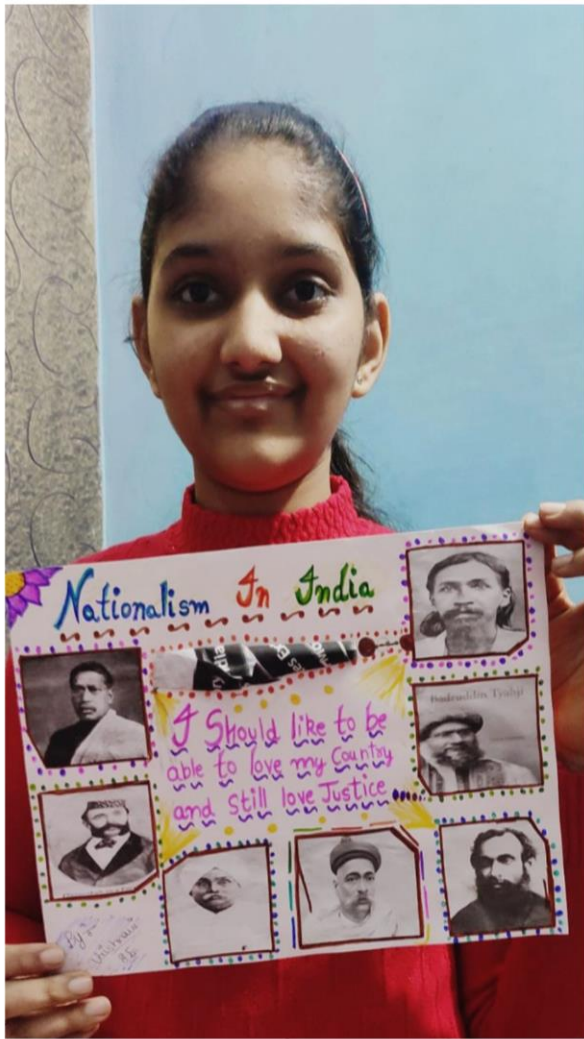 Nationalism In India
Badruddin Tyabji
I Should like to be
able to love my Country
and Still love Justice
By :-